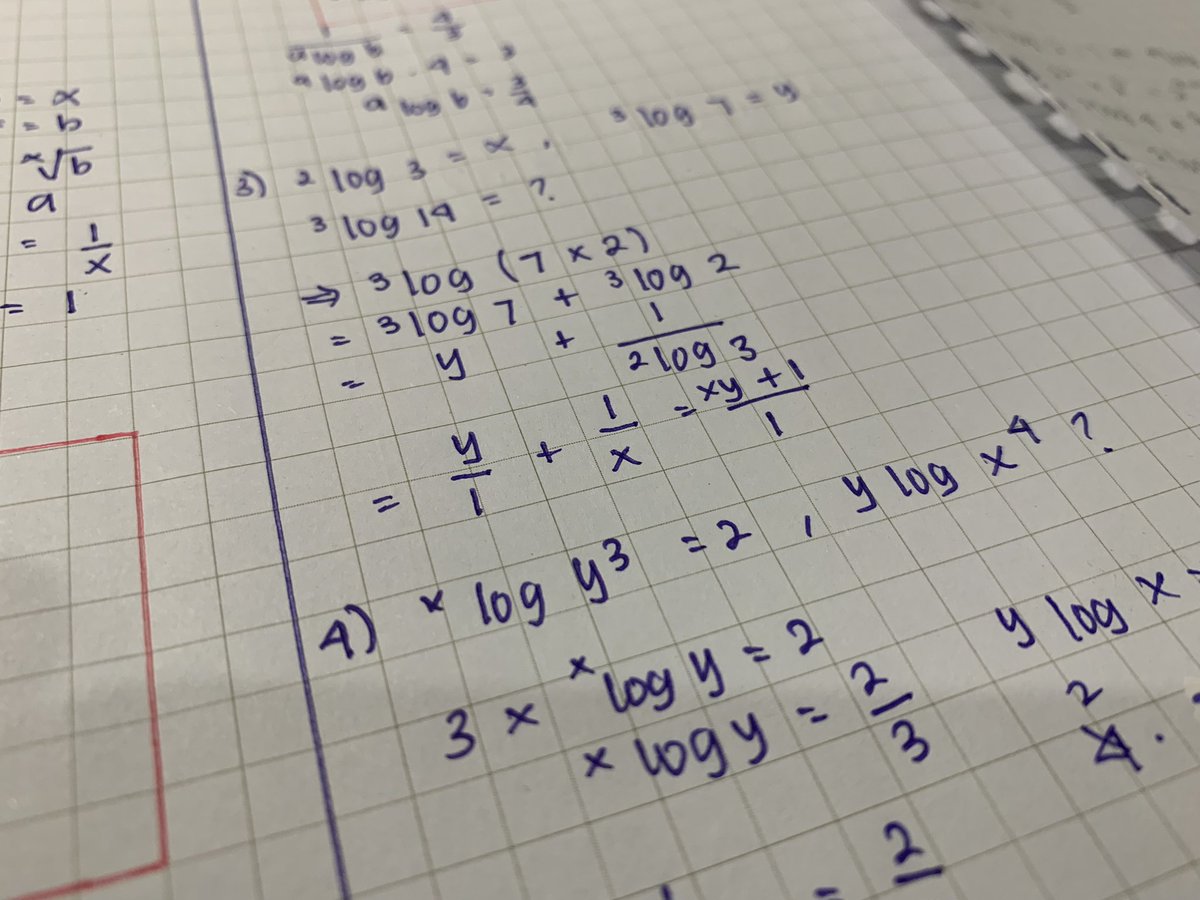 = x
= b
ˣ√b
a
= 1/x
= 1
1/(a log b) = 4/3
a log b · 4 = 3
a log b = 3/4
3) ² log 3 = x , ³ log 7 = y
³ log 14 = ?
⇒ ³ log (7 × 2)
= ³ log 7 + ³ log 2
= y + 1/(2 log 3)
= y/1 + 1/x = (xy + 1)/1
4) ˣ log y³ = 2 , y log x⁴ ?
3 × ˣ log y = 2
x log y = 2/3
y log x
2
4 ·
= 2